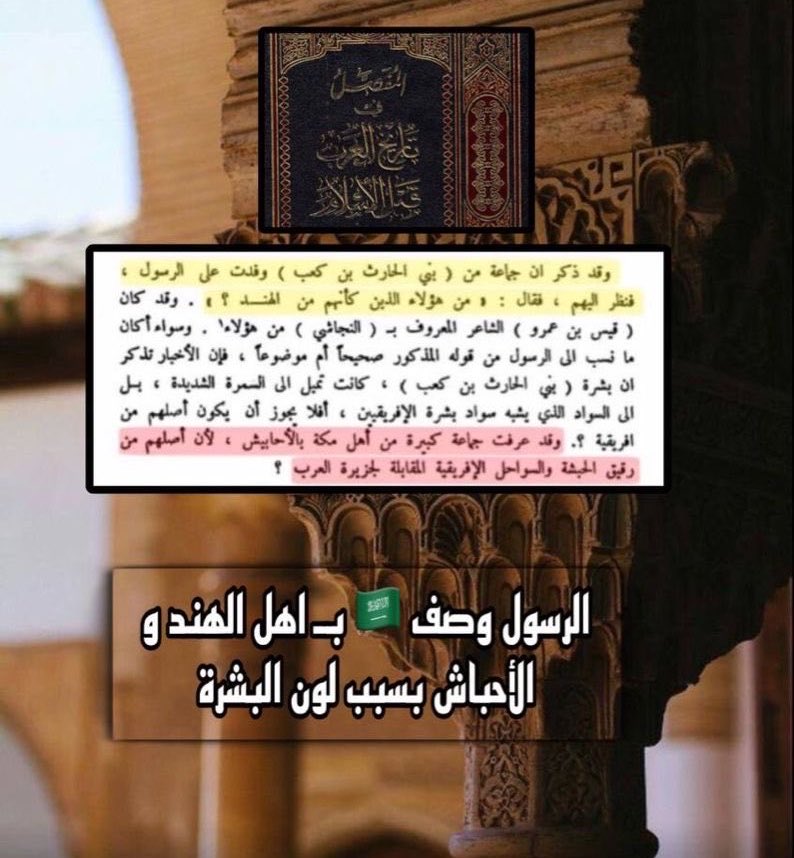 المفصل
في
تاريخ العرب
قبل الإسلام
وقد ذكر ان جماعة من ( بني الحارث بن كعب ) وفدت على الرسول ،
فنظر اليهم ، فقال : « من هؤلاء الذين كأنهم من الهنـــد ؟ » . وقد كان
( قيس بن عمرو ) الشاعر المعروف بـ ( النجاشي ) من هؤلاء١ . وسواء أكان
ما نسب الى الرسول من قوله المذكور صحيحاً أم موضوعاً ، فإن الأخبار تذكر
ان بشرة ( بني الحارث بن كعب ) ، كانت تميل الى السمرة الشديدة ، بــل
الى السواد الذي يشبه سواد بشرة الإفريقيين ، أفلا يجوز أن يكون أصلهم من
افريقية ؟. وقد عرفت جماعة كبيرة من أهل مكة بالأحابيش ، لأن أصلهم من
رقيق الحبشة والسواحل الإفريقية المقابلة لجزيرة العرب ؟
الرسول وصف 🇸🇦 بـ اهل الهند و
الأحباش بسبب لون البشرة